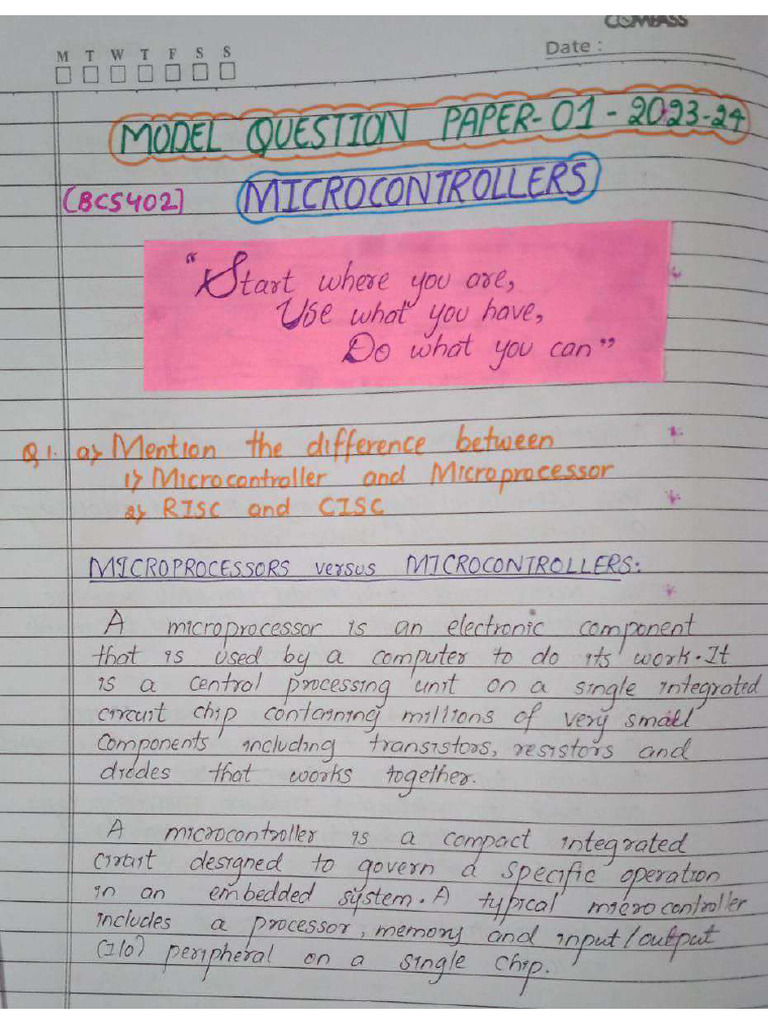 COMPASS
M T W T F S S
Date :
MODEL QUESTION PAPER-01-2023-24
[BCS402] MICROCONTROLLERS
"Start where you are,
Use what you have,
Do what you can"
Q1. a) Mention the difference between
1) Microcontroller and Microprocessor
2) RISC and CISC
MICROPROCESSORS versus MICROCONTROLLERS:
A microprocessor is an electronic component
that is used by a computer to do its work. It
is a central processing unit on a single integrated
circuit chip containing millions of very small
components including transistors, resistors and
diodes that works together.
A microcontroller is a compact integrated
circuit designed to govern a specific operation
in an embedded system. A typical microcontroller
includes a processor, memory and input/output
(I/O) peripheral on a single chip.